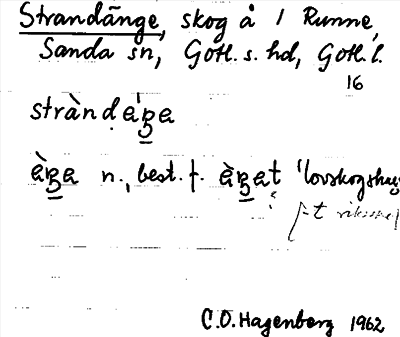 Strandänge, skog å 1 Runne,
Sanda sn, Gotl. s. hd, Gotl. l.
16
stràndáŋa
àŋa n., best. f. àŋat 'lövskogshag
C.O. Hagenborg 1962